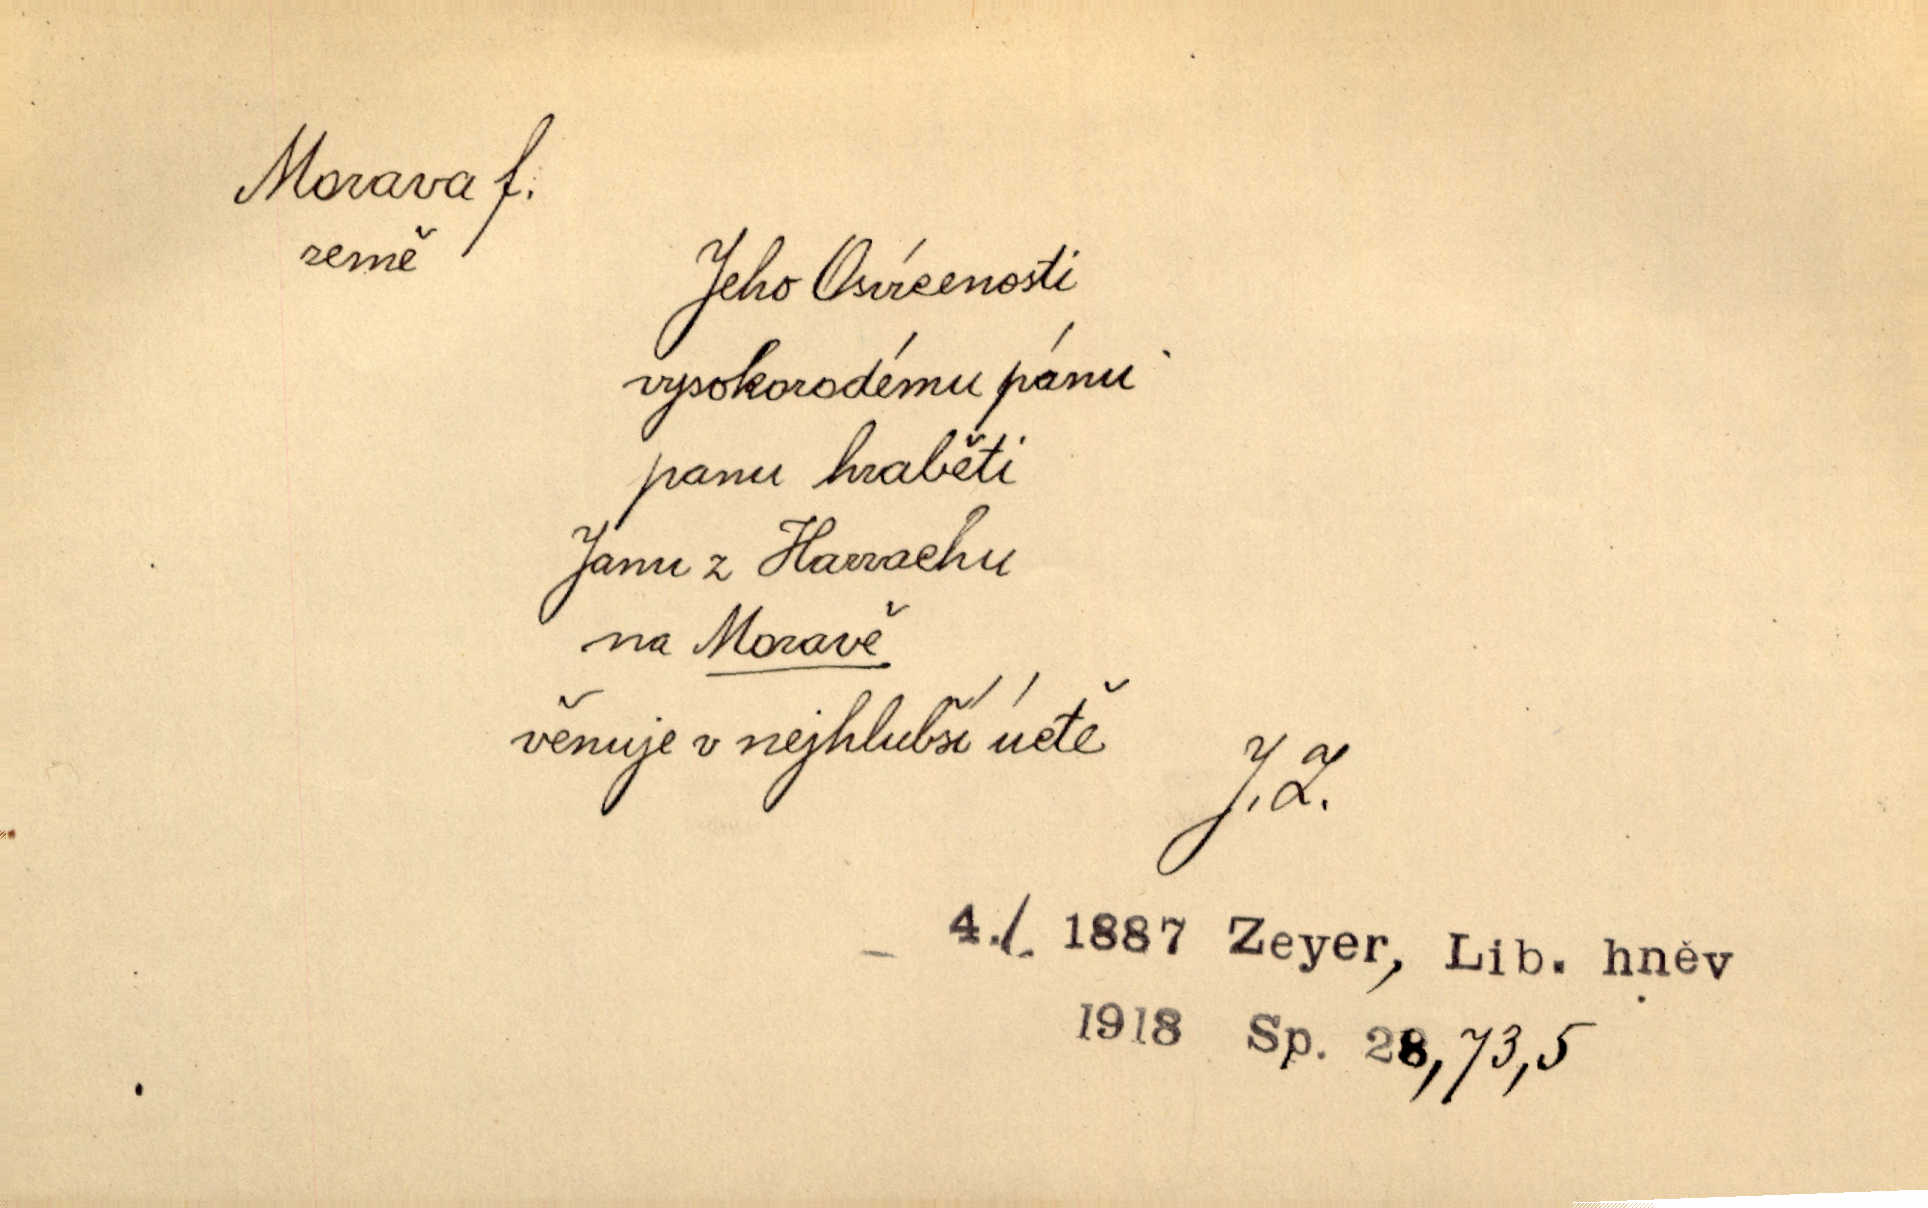 Morava f.
země
Jeho Osvícenosti
vysokorodému pánu
panu hraběti
Janu z Harrachu
na Moravě
věnuje v nejhlubší úctě
J. Z.
4./. 1887 Zeyer, Lib. hněv
1918 Sp. 28,73,5